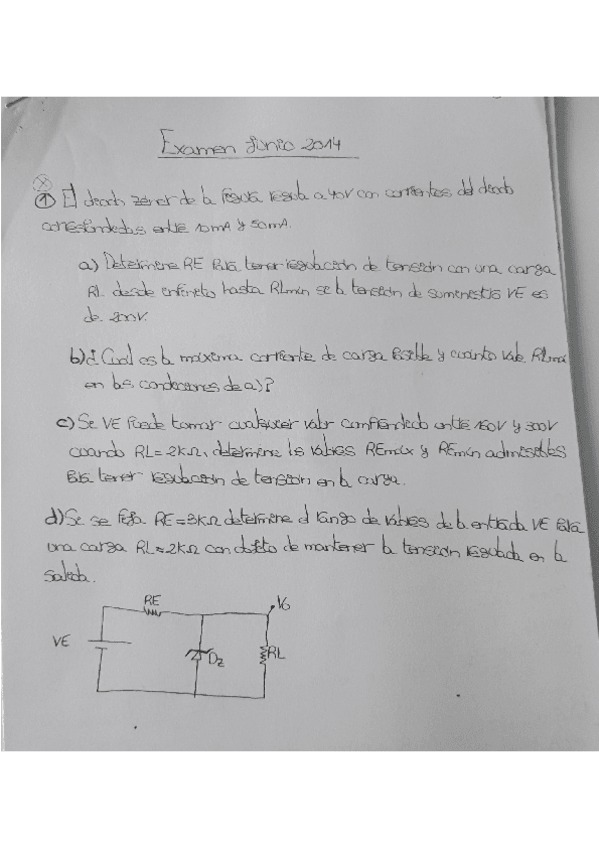 Examen junio 2014
① El diodo zener de la figura regula a 40V con corrientes del diodo
comprendidas entre 10mA y 50mA.
a) Determine RE para tener regulación de tensión con una carga
RL desde infinito hasta RLmin si la tensión de suministro VE es
de 200V.
b) ¿Cuál es la máxima corriente de carga posible y cuánto vale RLmin
en las condiciones de a)?
c) Si VE puede tomar cualquier valor comprendido entre 160V y 300V
cuando RL=2kΩ, determine los valores REmáx y REmin admisibles
para tener regulación de tensión en la carga.
d) Si se fija RE=3kΩ determine el rango de valores de la entrada VE para
una carga RL=2kΩ con objeto de mantener la tensión regulada en la
salida.
RE
Vo
VE
Dz
RL